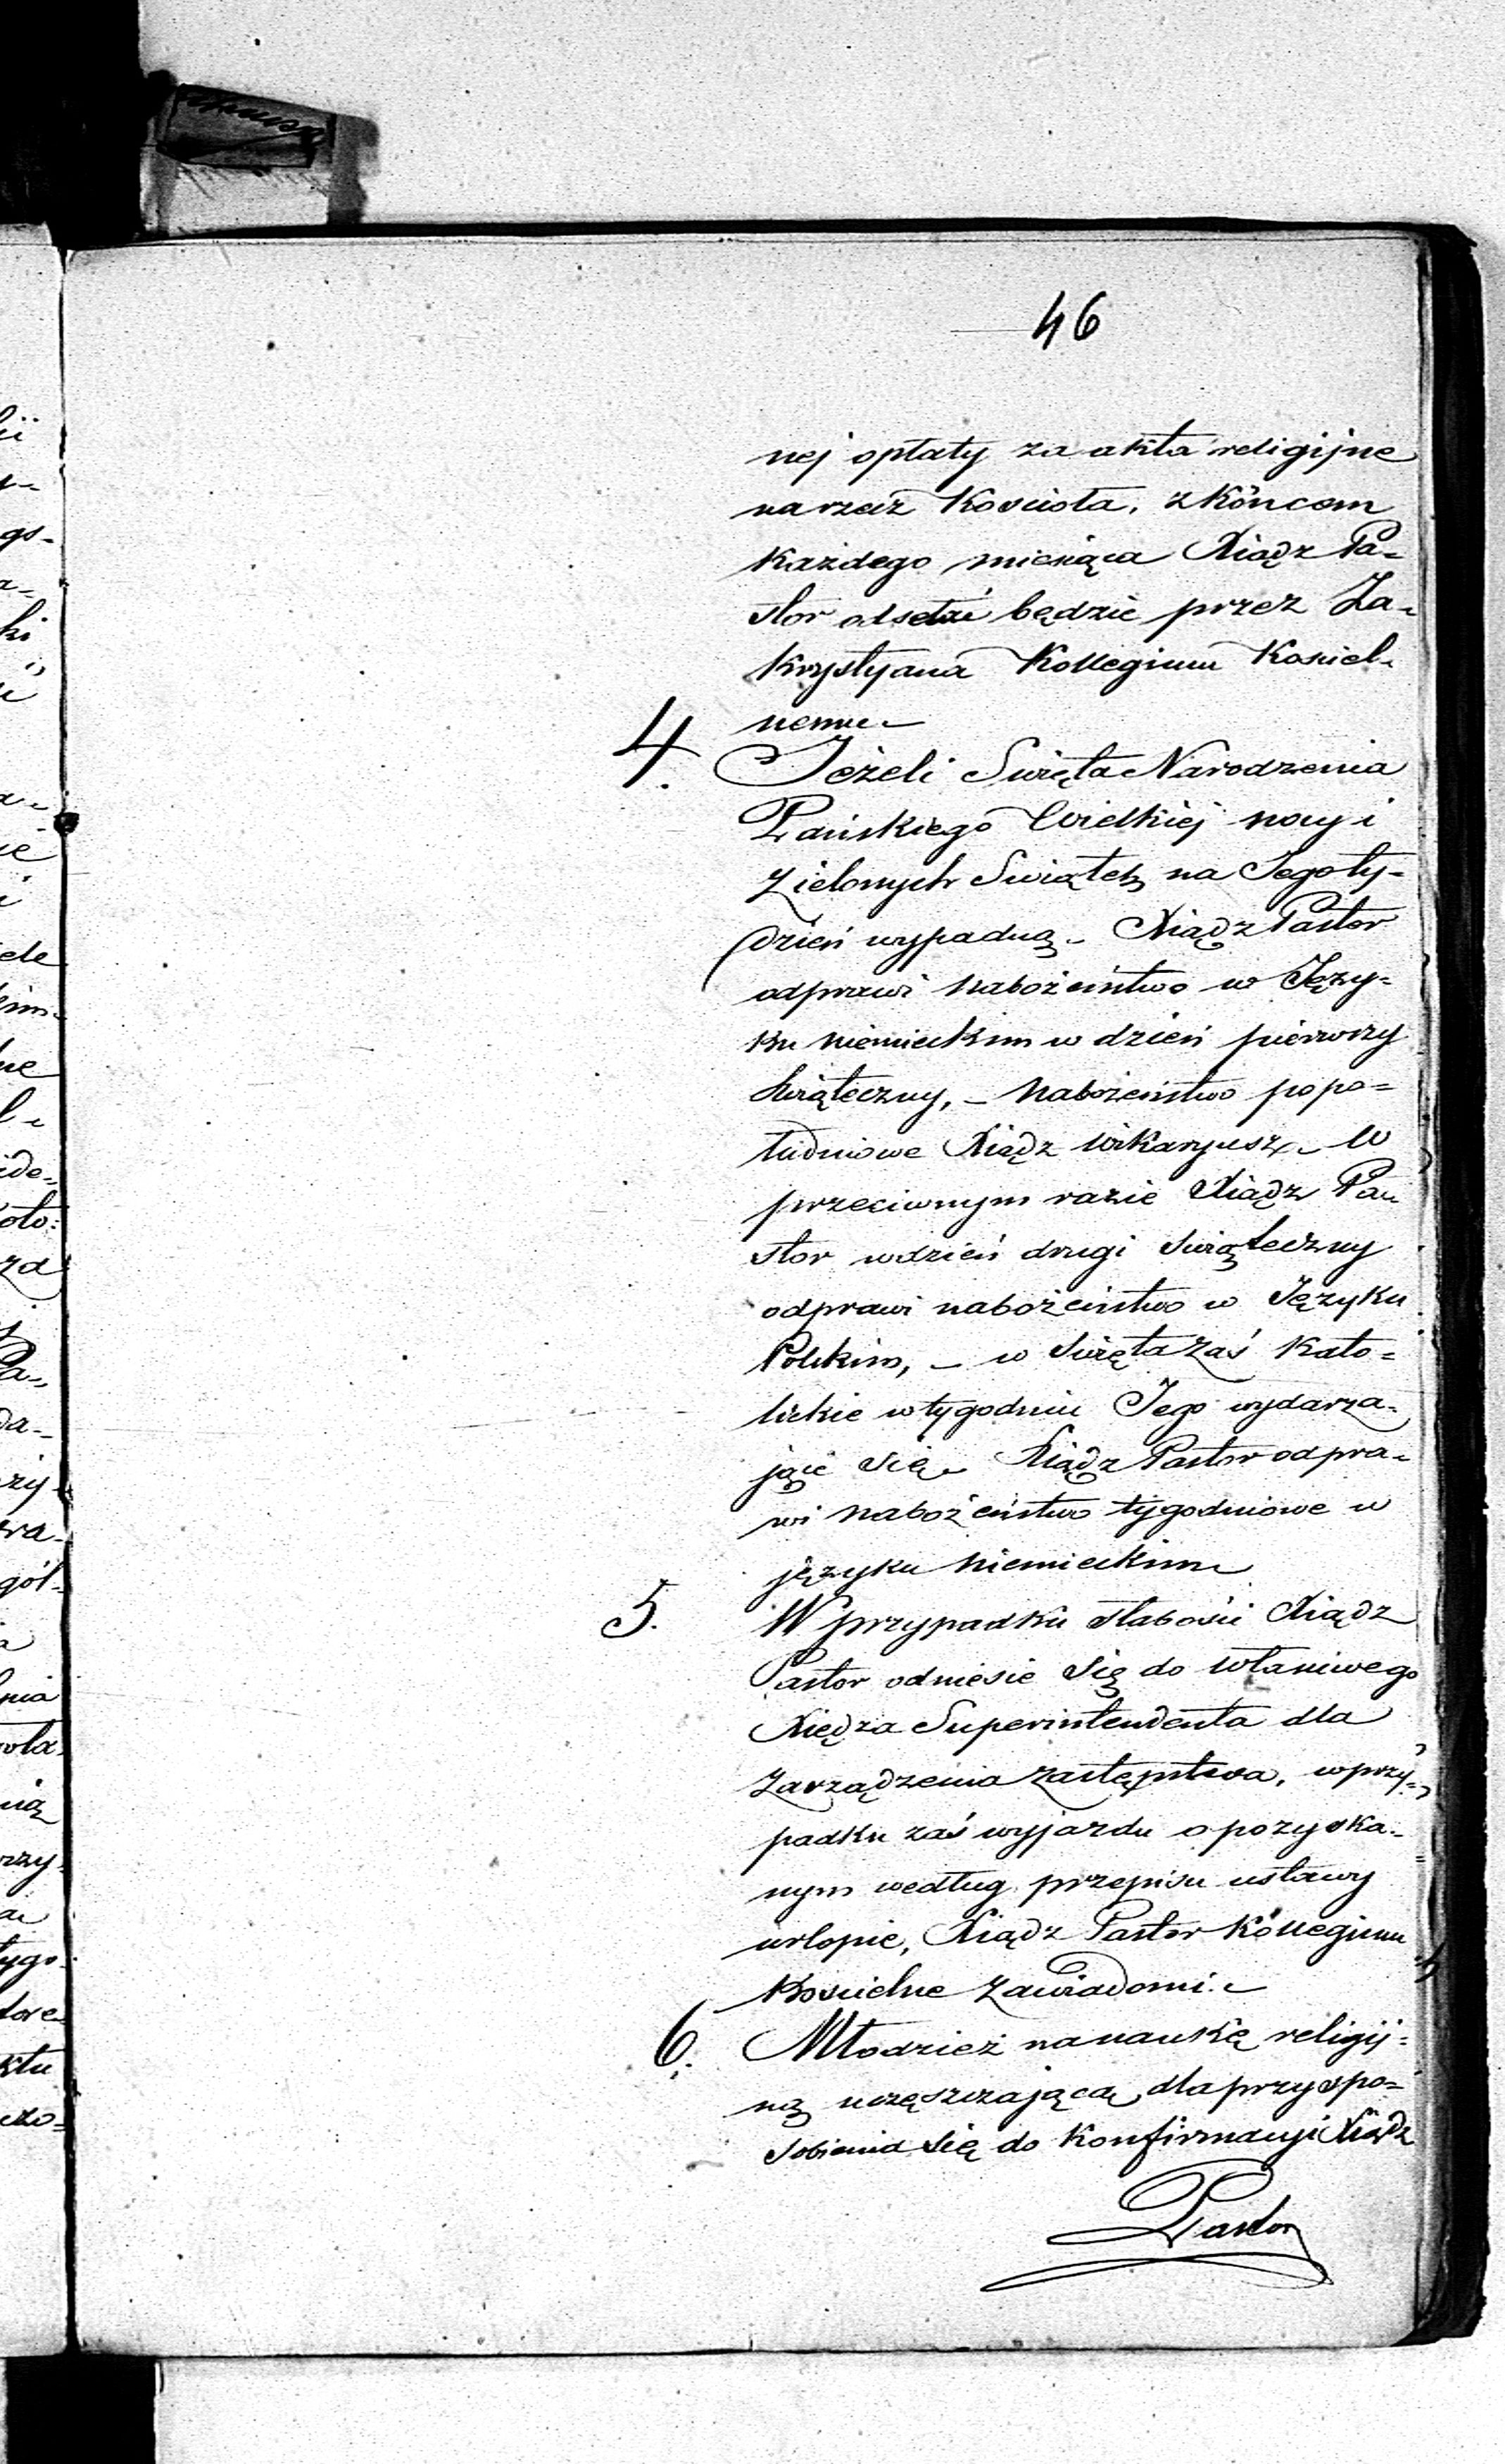 46
nej opłaty za akta religijne
na rzecz Kościoła, z Końcem
Każdego miesiąca Xiądz Pa-
stor odsełać będzie przez Za-
krystyana Kollegium Kościel-
nemu
4. Jeżeli Święta Narodzenia
Pańskiego Wielkiej nocy i
Zielonych Świątek na Jego ty-
dzień wypadną - Xiądz Pastor
odprawi nabożeństwo w Języ-
ku niemieckim w dzień pierwszy
świąteczny, - nabożeństwo popo-
łudniowe Xiądz Wikaryusz - W
przeciwnym razie Xiądz Pa-
stor w dzień drugi świąteczny
odprawi nabożeństwo w Języku
Polskim, - w święta zaś Kato-
lickie w tygodniu Jego wydarza-
jące się - Xiądz Pastor odpra-
wi nabożeństwo tygodniowe w
języku niemieckim
5. W przypadku słabości Xiądz
Pastor odniesie się do właściwego
Xiędza Superintendenta dla
zarządzenia zastępstwa, w przy-
padku zaś wyjazdu o pozyska-
nym według przepisu ustawy
urlopie, Xiądz Pastor Kollegium
Kościelne zawiadomi. -
6. Młodzież na naukę religij-
ną uczęszczającą dla przyspo-
sobienia się do Konfirmacyi Xiądz
Pastor